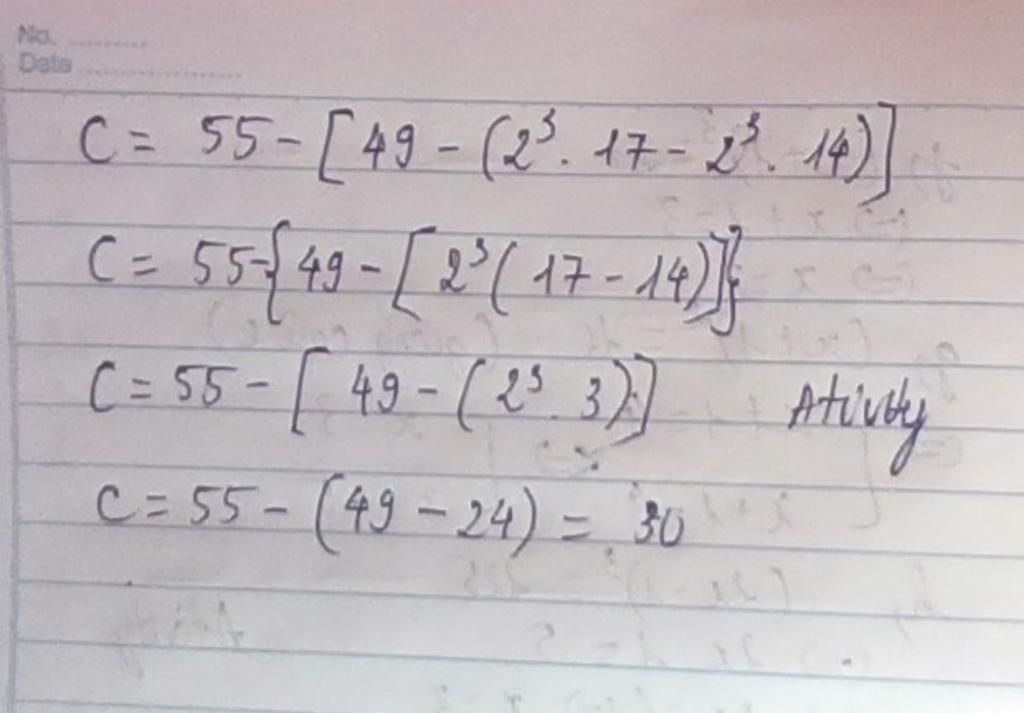 No. ............
Date ........................
C = 55 - [49 - (2³. 17 - 2³. 14)]
C = 55-{49 - [2³(17 - 14)]}
C = 55 - [49 - (2³. 3)]
Ativdy
C = 55 - (49 - 24) = 30